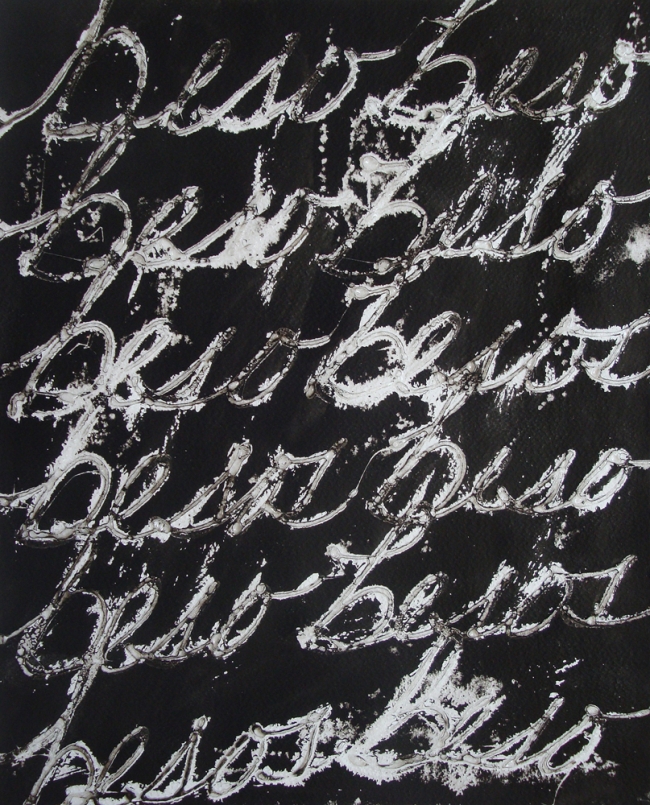 beso beso
beso beso
beso besos
besos beso
beso besos
besos beso